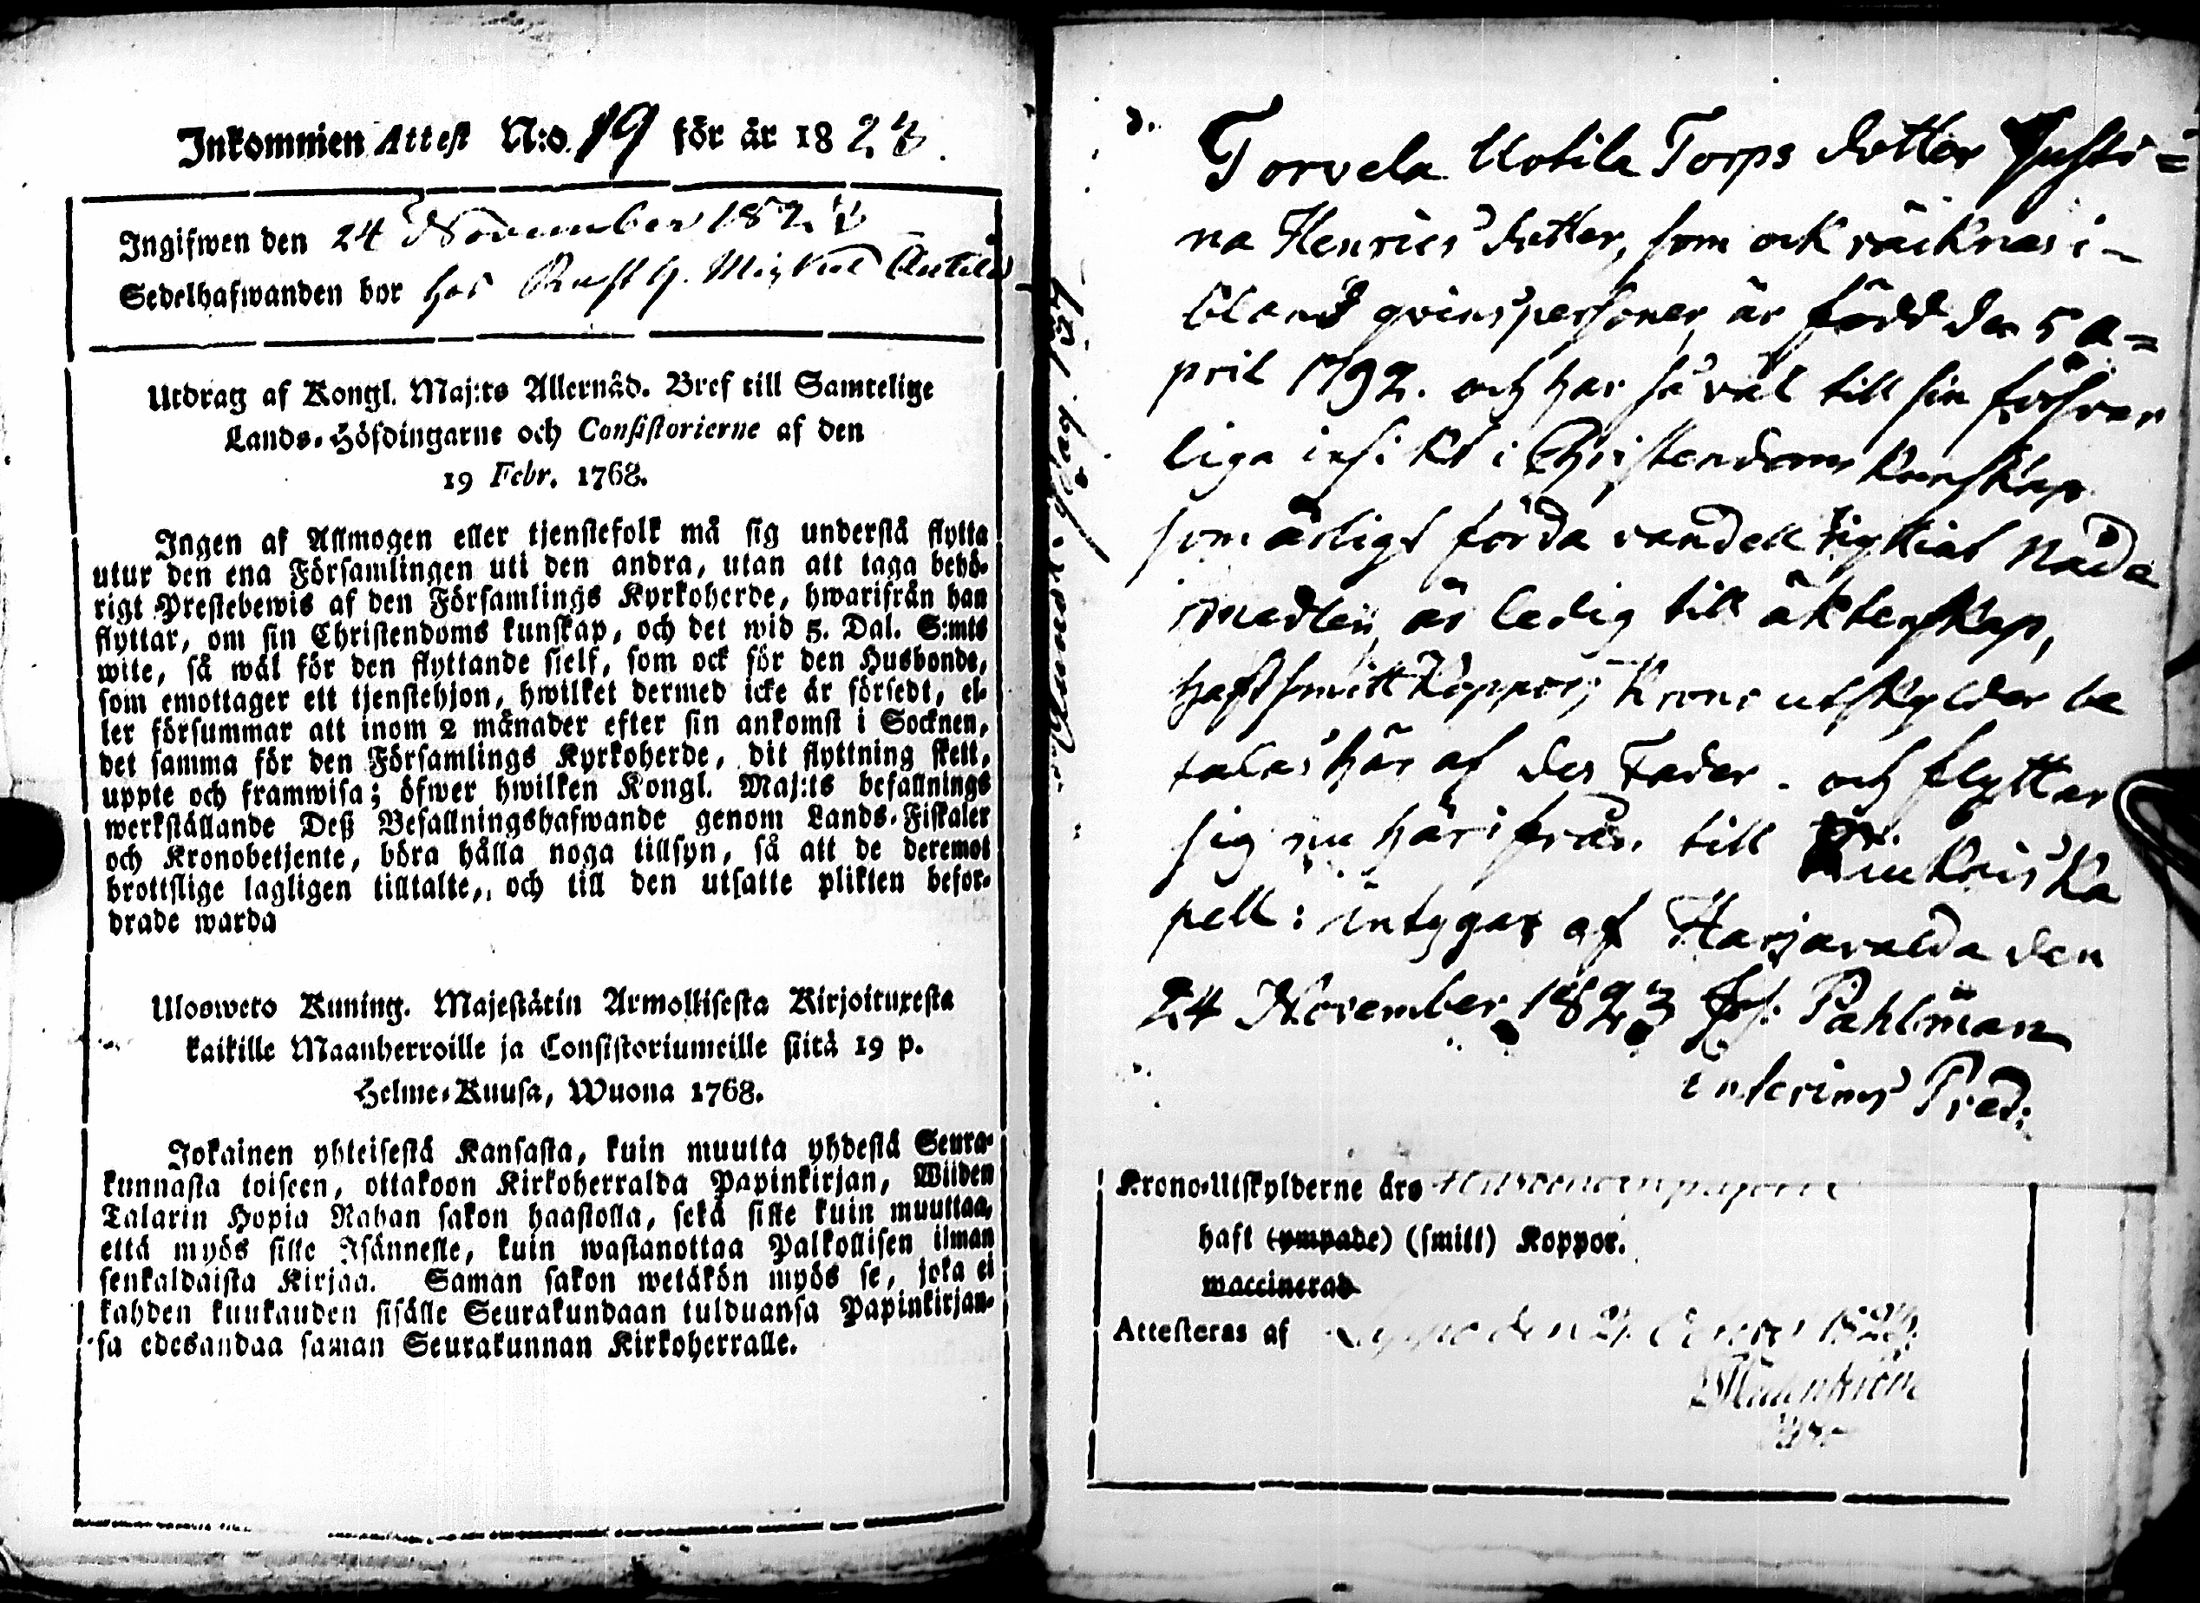 Inkommen Attest N:o. 19 för år 1823.
Ingifwen den 24 November 1823
Sedelhafwanden bor hos Rusth. Anttila
Utdrag af Kongl. Maj:ts Allernåd. Bref till Samtelige
Lands-Höfdingarne och Consistorierne af den
19 Febr. 1768.
Ingen af Allmogen eller tjenstefolk må sig understå flytta
utur den ena Församlingen uti den andra, utan att taga behö-
rigt Prestebewis af den Församlings Kyrkoherde, hwarifrån han
flyttar, om sin Christendoms kunskap, och det wid 5. Dal. S:mts
wite, så wäl för den flyttande sielf, som ock för den Husbonde,
som emottager ett tjenstehjon, hwilket dermed icke är försedt, el-
ler försummar att inom 2 månader efter sin ankomst i Socknen,
det samma för den Församlings Kyrkoherde, dit flyttning skett,
uppte och framwisa; öfwer hwilken Kongl. Maj:ts befallnings
werkställande Deß Befallningshafwande genom Lands-Fiskaler
och Kronobetjente, böra hålla noga tillsyn, så att de deremot
brottslige lagligen tilltalte, och till den utsatte plikten befor-
drade warda
Uloswero Kuning. Majestätin Armollisesta Kirjoituxesta
kaikille Maanherroille ja Consistoriumeille siitä 19 p.
Helme-Kuusa, Wuona 1768.
Jokainen yhteisestä Kansasta, kuin muutta yhdestä Seura-
kunnasta toiseen, ottakoon Kirkoherralda Papinkirjan, Wiiden
Talarin Hopia Rahan sakon haastolla, sekä sille kuin muuttaa,
että myös sille Isännelle, kuin wastanottaa Palkollisen ilman
senkaldaista Kirjaa. Saman sakon wetäkön myös se, joka ei
kahden kuukauden sisälle Seurakundaan tulduansa Papinkirjan-
sa edesandaa saman Seurakunnan Kirkoherralle.
Torvela Uotila Torps dotter Justi=
na Henrics dotter, som ock räiknas i-
bland qvins personer, är född den 5 A=
pril 1792. och har så väl till sin försvar
liga insikt i Christendoms kunskap
som ärligt förda vandell nyttiat nåde
medlen, är ledig till äktenskap,
haft smitt Koppor, Krono utskylder be
talas här af des Fader. och flyttar
sig nu härifrån till Kiukais Ka
pell: intygar af Harjavalda den
24 November 1823 Pahlman
interims Pred:
Krono-Utskylderne äro
haft (ympade) (smitt) Koppor.
waccinerad
Attesteras af den